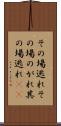 その場逃れそ
の場のがれ其
の場逃れ